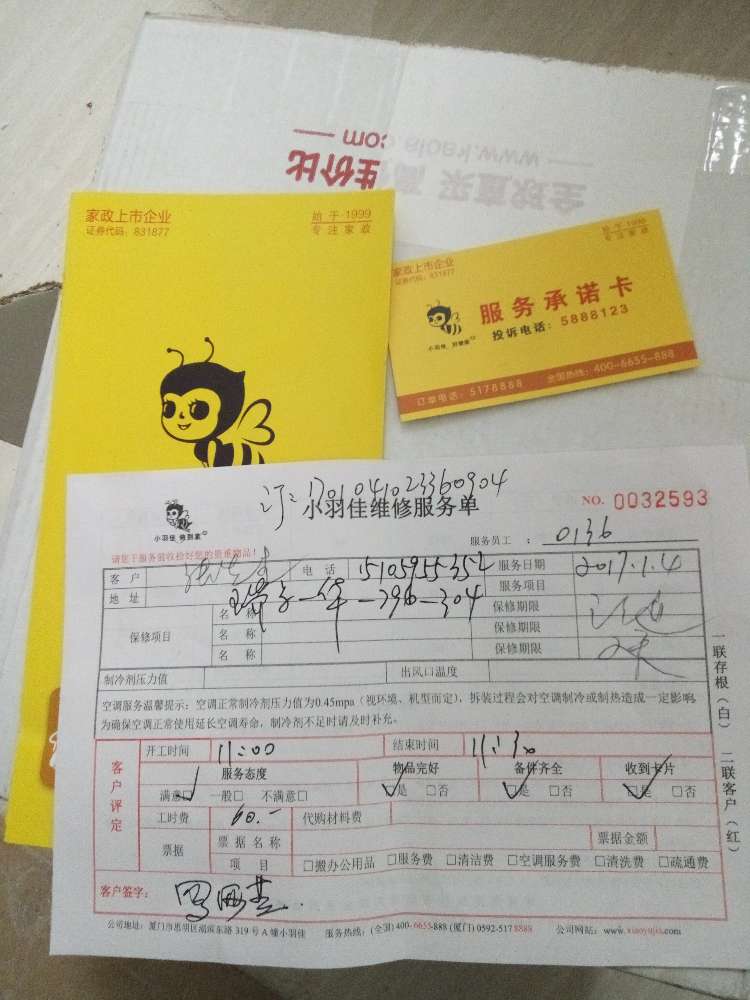 www.kaola.com —
全球直采 高性价比
家政上市企业
证券代码：831877
始于·1999
专注家政
家政上市企业
证券代码：831877
始于·1999
专注家政
小羽佳 好管家
服务承诺卡
投诉电话：5888123
订单电话：5178888 全国热线：400-6655-888
订：1701041023360904
小羽佳 修到家
小羽佳维修服务单
NO. 0032593
请您于服务前收捡好您的贵重物品！
服务员工： 0136
客户 电话 15105955352 服务日期 2017.1.4
地址 296-304 服务项目
保修项目
名称 保修期限
名称 保修期限
名称 保修期限
制冷剂压力值 出风口温度
空调服务温馨提示：空调正常制冷剂压力值为0.45mpa（视环境、机型而定），拆装过程会对空调制冷或制热造成一定影响，
为确保空调正常使用延长空调寿命，制冷剂不足时请及时补充。
客户评定
开工时间 11:00 结束时间 11:30
服务态度 物品完好 备件齐全 收到卡片
满意□ 一般□ 不满意□ □是 □否 □是 □否 □是 □否
工时费 60.- 代购材料费
票据 票据名称 票据金额
项目 □搬办公用品 □服务费 □清洁费 □空调服务费 □清洗费 □疏通费
客户签字：
一联存根（白） 二联客户（红）
公司地址：厦门市思明区湖滨东路319号A幢小羽佳 服务热线：(全国)400-6655-888 (厦门) 0592-5178888 公司网站：www.xiaoyujia.com